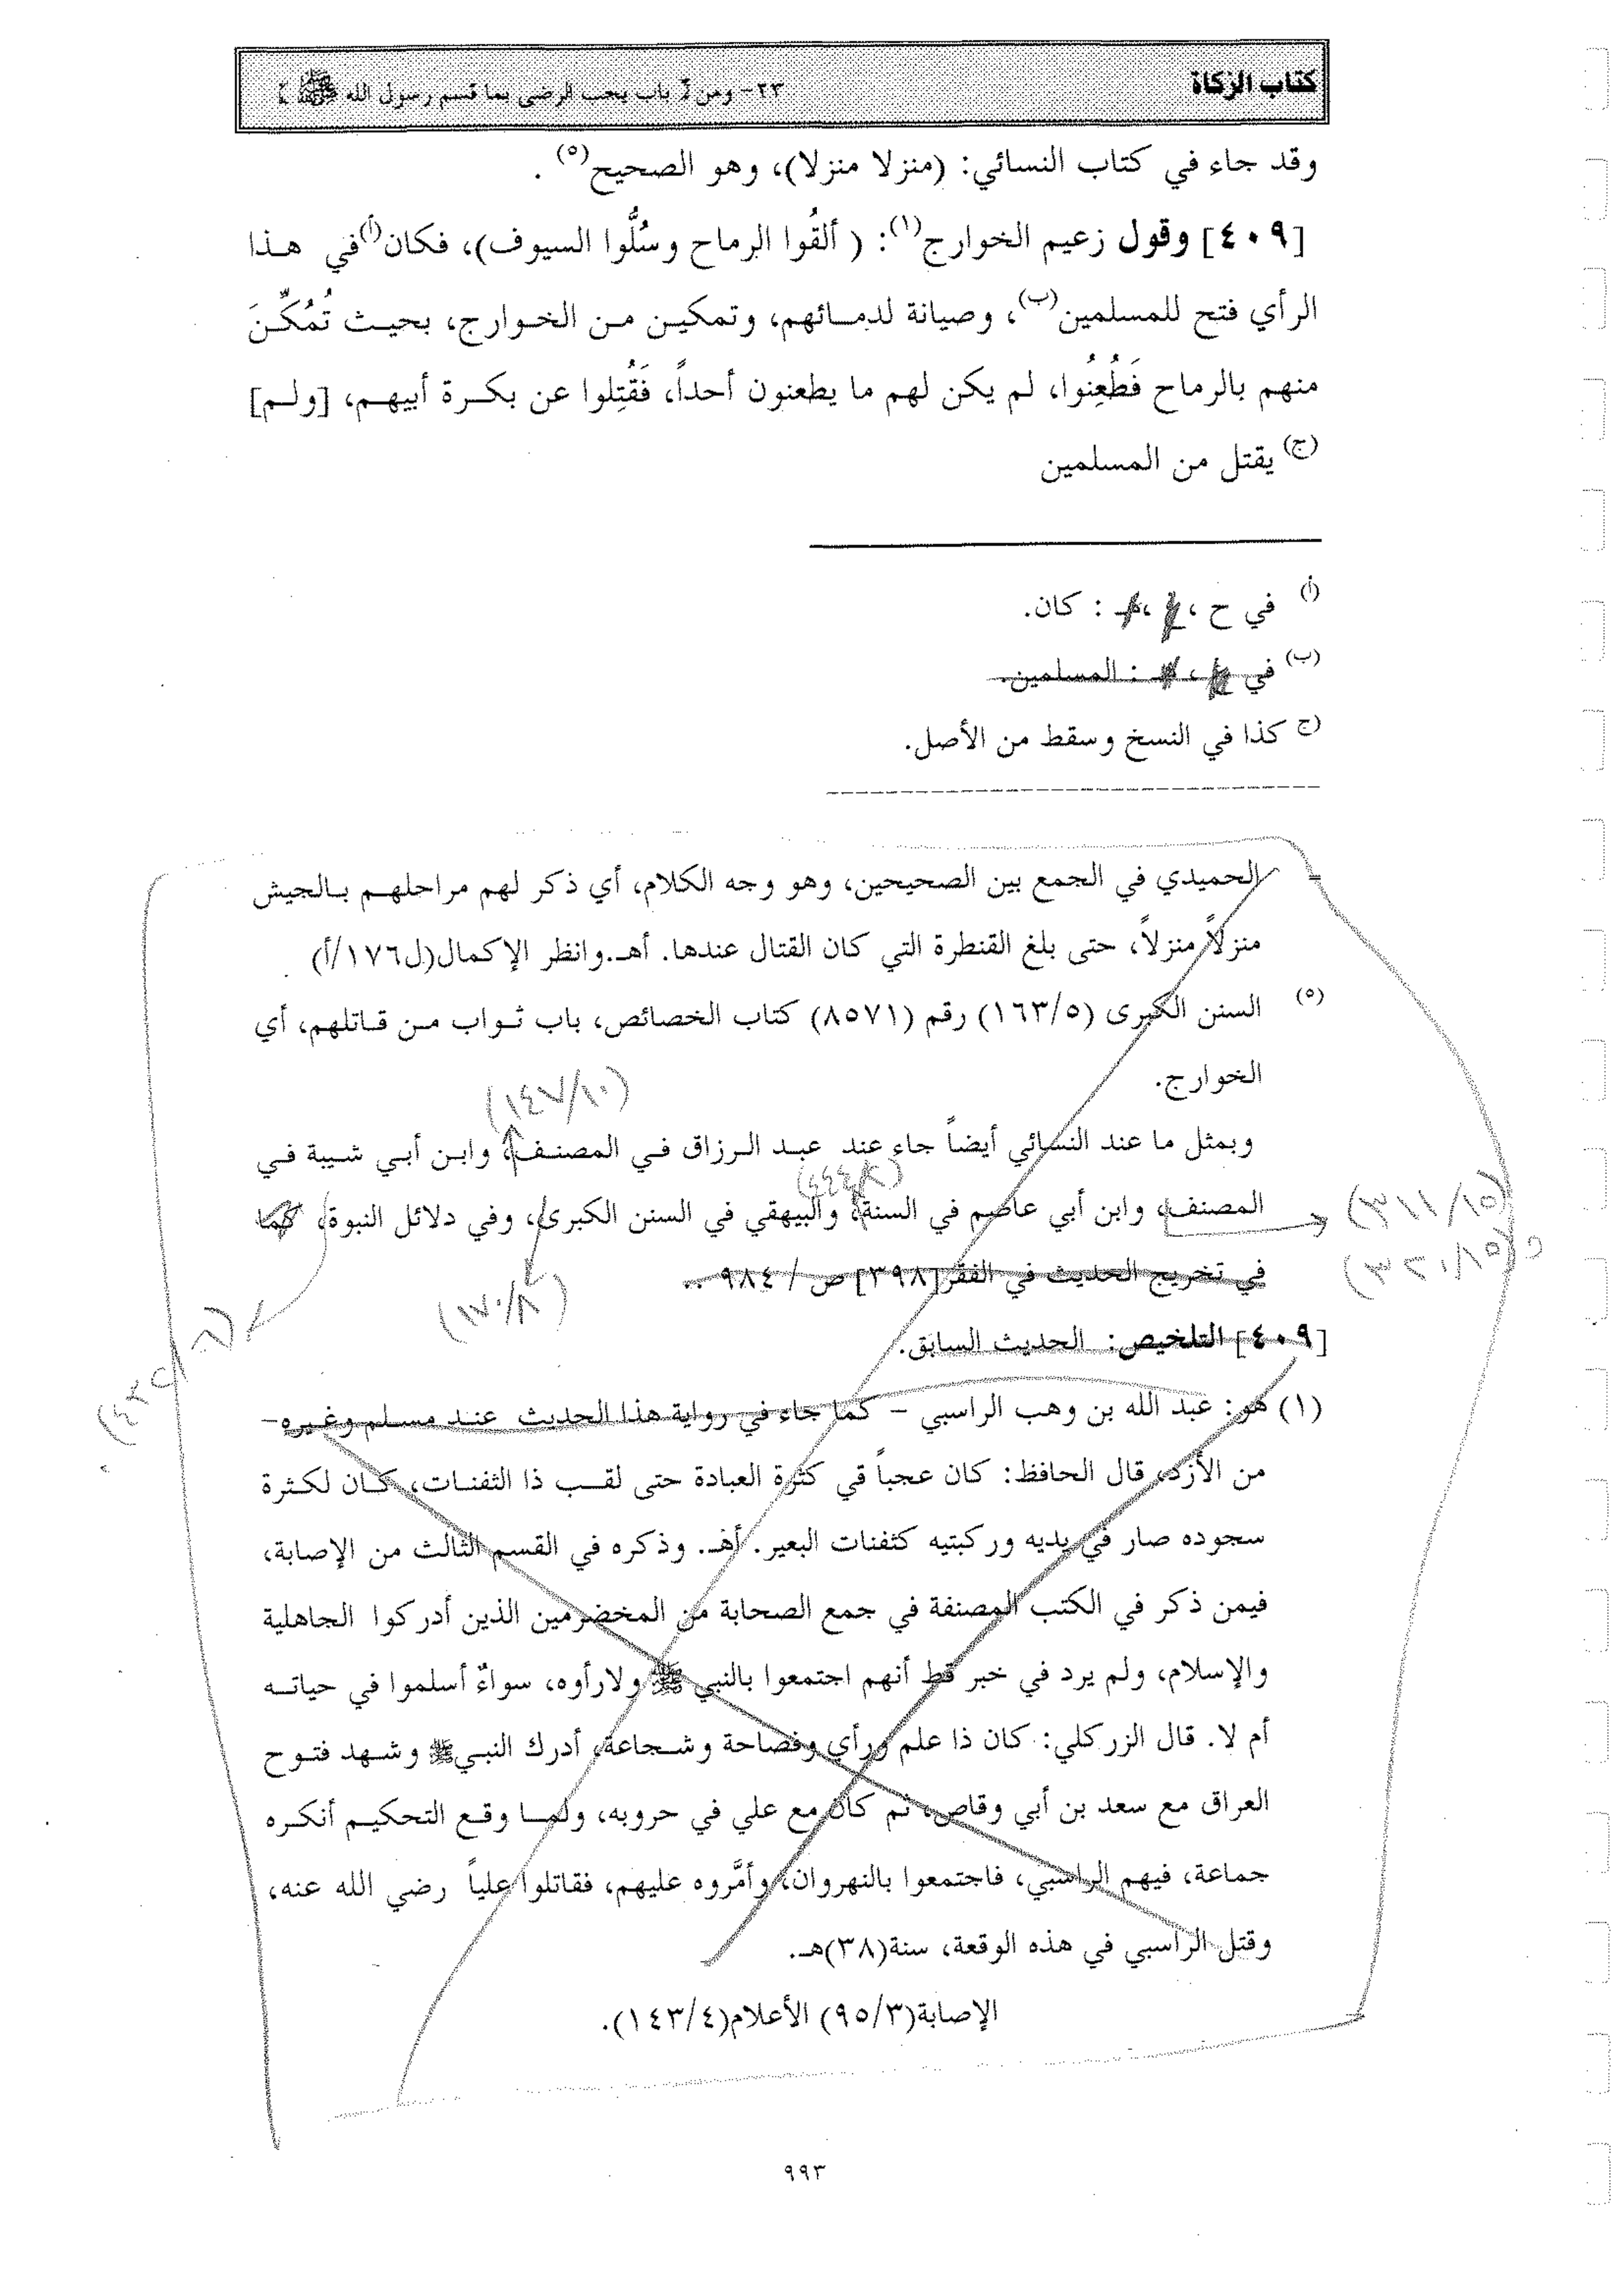 كتاب الزكاة
٢٣- ومن { باب يجب الرضى بما قسم رسول الله ﷺ }
وقد جاء في كتاب النسائي: (منزلا منزلا)، وهو الصحيح(٥) .
[٤٠٩] وقول زعيم الخوارج(١): ( ألقُوا الرماح وسُلُّوا السيوف)، فكان(أ)في هذا
الرأي فتح للمسلمين(ب)، وصيانة لدمائهم، وتمكين من الخوارج، بحيث تُمُكِّنَ
منهم بالرماح فَطُعِنُوا، لم يكن لهم ما يطعنون أحداً، فَقُتِلوا عن بكرة أبيهم، [ولم]
(ج) يقتل من المسلمين
(أ) في ح ، : كان.
(ب) في : المسلمين.
(ج) كذا في النسخ وسقط من الأصل.
= الحميدي في الجمع بين الصحيحين، وهو وجه الكلام، أي ذكر لهم مراحلهم بالجيش
منزلاً منزلاً، حتى بلغ القنطرة التي كان القتال عندها. أهـ.وانظر الإكمال(ل١٧٦/أ) .
(٥) السنن الكبرى (١٦٣/٥) رقم (٨٥٧١) كتاب الخصائص، باب ثواب من قاتلهم، أي
الخوارج.
(١٤٧/١٠)
وبمثل ما عند النسائي أيضاً جاء عند عبد الرزاق في المصنف، وابن أبي شيبة في
المصنف، وابن أبي عاصم في السنة، والبيهقي في السنن الكبرى، وفي دلائل النبوة، كما
(٣١١/١٥)
و(٣٢٠/١٥)
في تخريج الحديث في الفقر[٣٩٨] ص / ٩٨٤ ..
(١٧٠/٨)
[٤٠٩] التلخيص: الحديث السابق.
(١) هو: عبد الله بن وهب الراسبي – كما جاء في رواية هذا الحديث عند مسلم وغيره–
من الأزد، قال الحافظ: كان عجباً قي كثرة العبادة حتى لقب ذا الثفنات، كان لكثرة
سجوده صار في يديه وركبتيه كثفنات البعير. أهـ. وذكره في القسم الثالث من الإصابة،
فيمن ذكر في الكتب المصنفة في جمع الصحابة من المخضرمين الذين أدركوا الجاهلية
والإسلام، ولم يرد في خبر قط أنهم اجتمعوا بالنبي ﷺ ولارأوه، سواءٌ أسلموا في حياته
أم لا. قال الزركلي: كان ذا علم ورأي وفصاحة وشجاعة، أدرك النبي ﷺ وشهد فتوح
العراق مع سعد بن أبي وقاص، ثم كان مع علي في حروبه، ولما وقع التحكيم أنكره
جماعة، فيهم الراسبي، فاجتمعوا بالنهروان، وأمَّروه عليهم، فقاتلوا علياً رضي الله عنه،
وقتل الراسبي في هذه الوقعة، سنة(٣٨)هـ.
الإصابة(٩٥/٣) الأعلام(١٤٣/٤).
٩٩٣